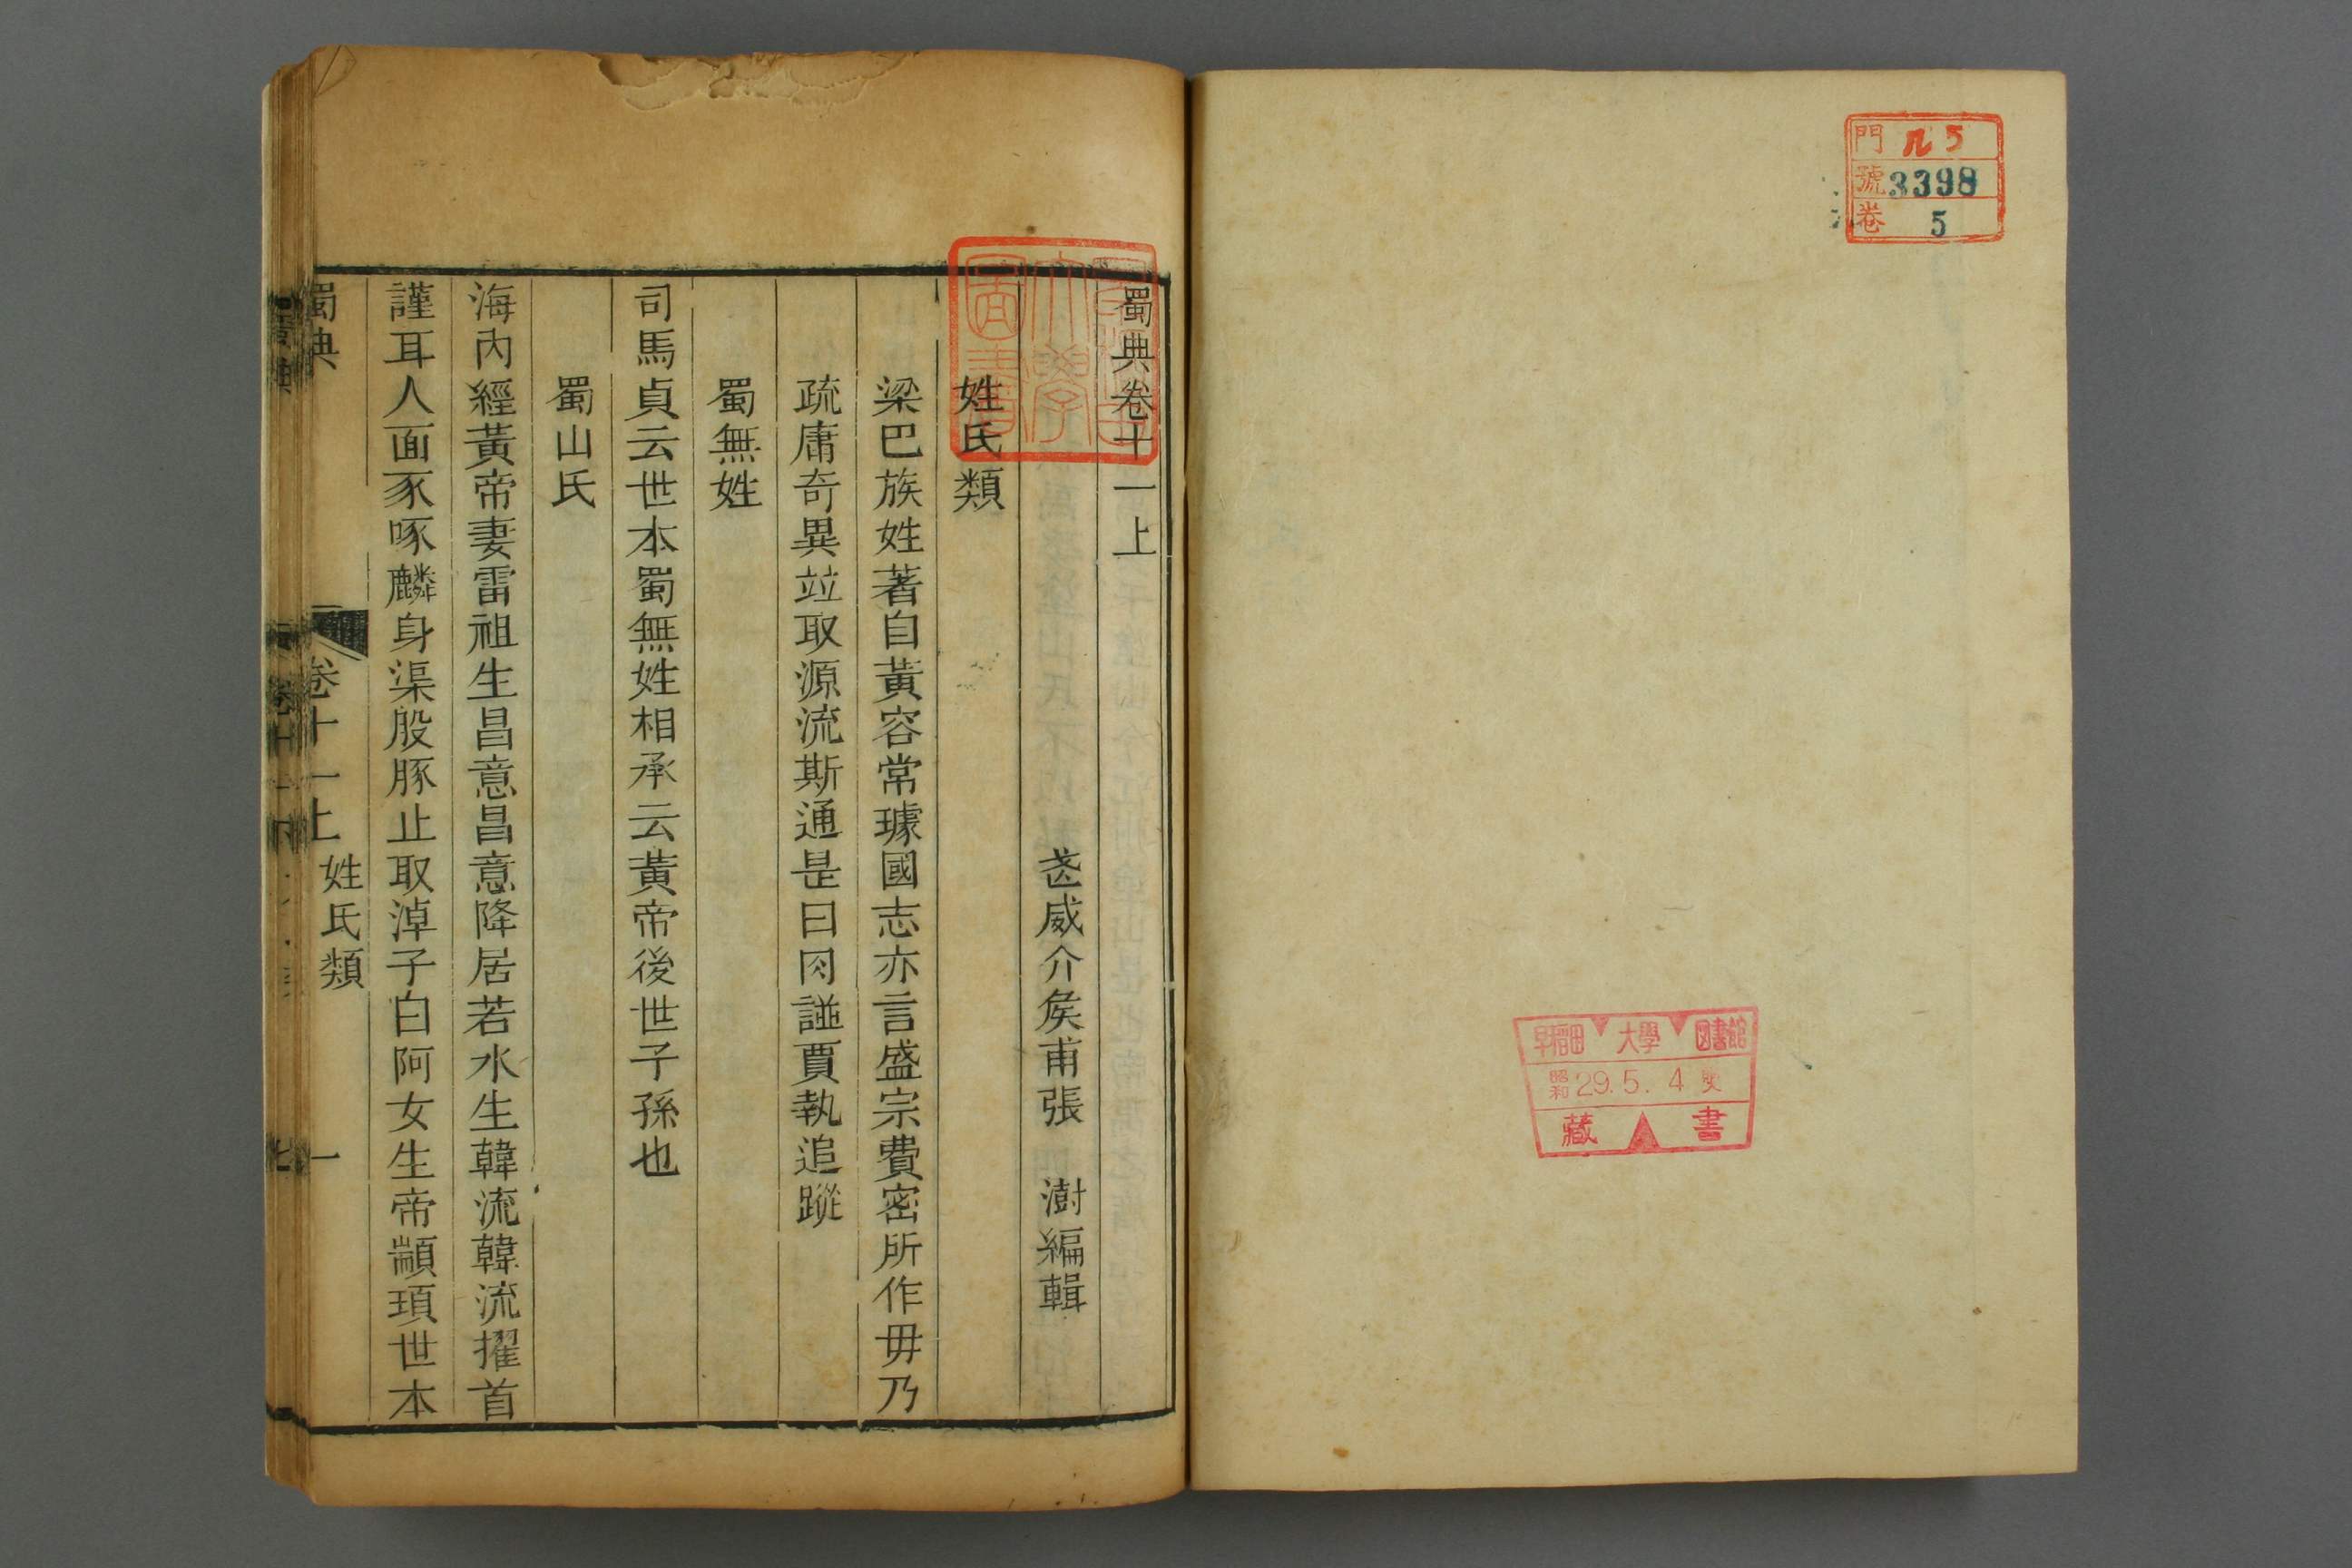 門 ル 5
號 3398
卷 5
早稲田 大學 図書館
昭和 29.5.4
藏 書
早稲田
大學
圖書
蜀典卷十一上
武威介矦甫張 澍編輯
姓氏類
梁巴族姓著自黃容常璩國志亦言盛宗費密所作毋乃
疏庸奇異竝取源流斯通是曰肉譜賈執追蹤
蜀無姓
司馬貞云世本蜀無姓相承云黃帝後世子孫也
蜀山氏
海內經黃帝妻雷祖生昌意昌意降居若水生韓流韓流擢首
謹耳人面豕啄麟身渠股豚止取淖子曰阿女生帝顓頊世本
蜀典 卷十一上 姓氏類 一